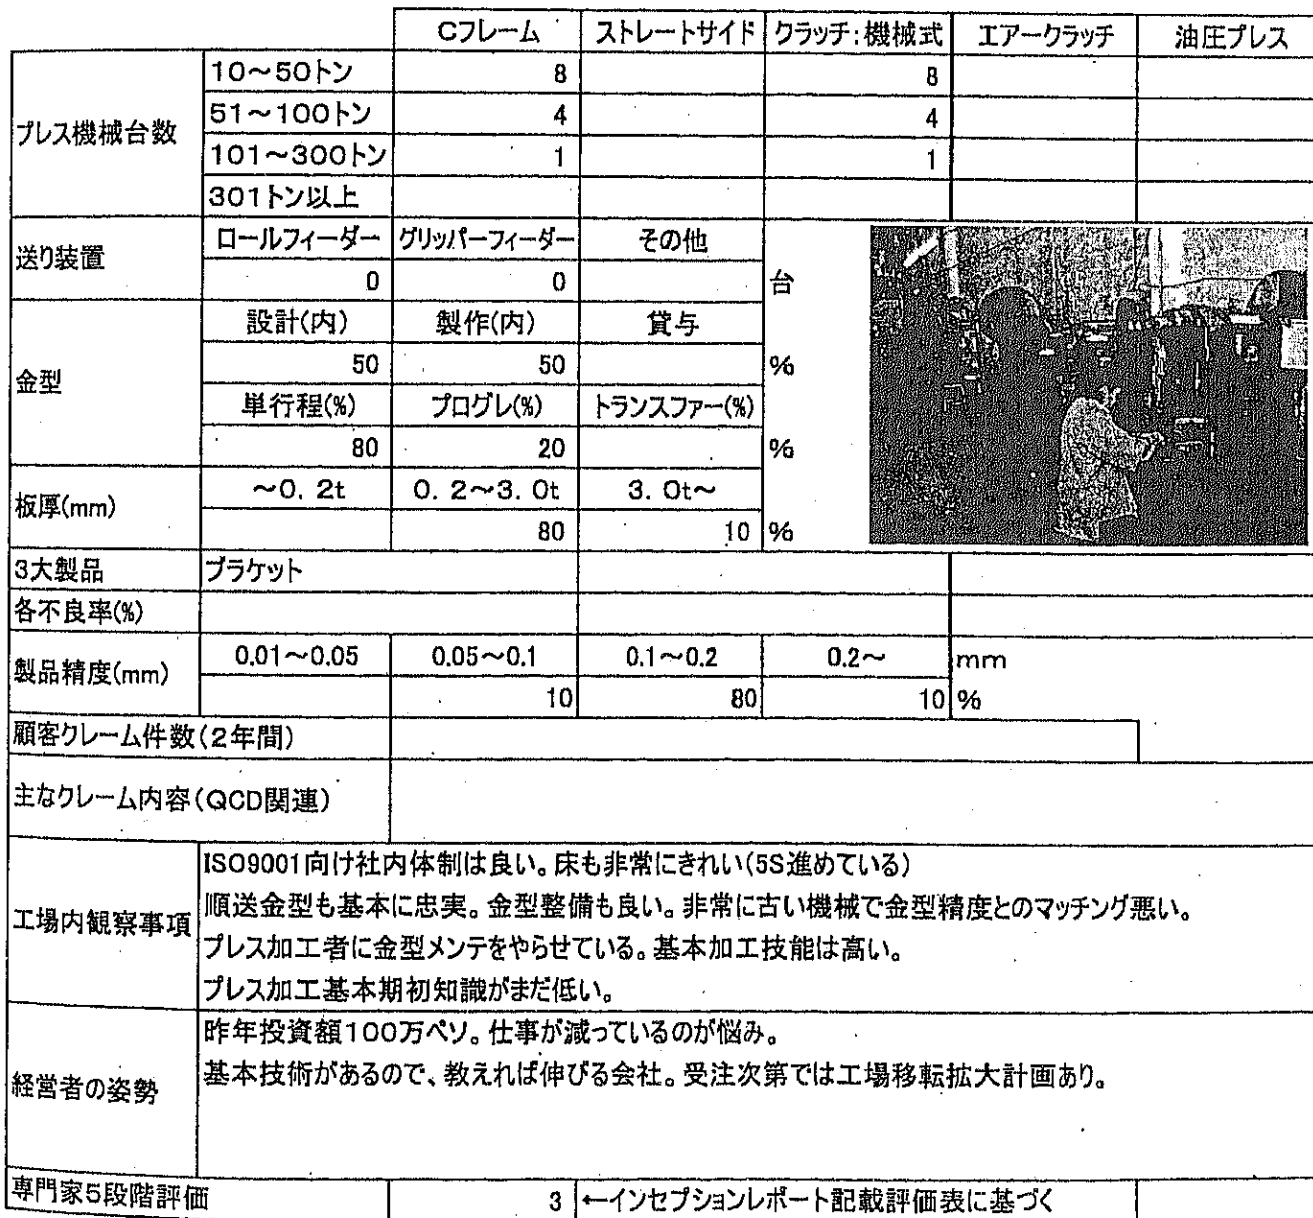 Cフレーム ストレートサイド クラッチ:機械式 エアークラッチ 油圧プレス
プレス機械台数
10～50トン 8 8
51～100トン 4 4
101～300トン 1 1
301トン以上
送り装置
ロールフィーダー グリッパーフィーダー その他
0 0 台
金型
設計(内) 製作(内) 貸与
50 50 %
単行程(%) プログレ(%) トランスファー(%)
80 20 %
板厚(mm)
～0.2t 0.2～3.0t 3.0t～
80 10 %
3大製品 ブラケット
各不良率(%)
製品精度(mm)
0.01～0.05 0.05～0.1 0.1～0.2 0.2～ mm
10 80 10 %
顧客クレーム件数(2年間)
主なクレーム内容(QCD関連)
工場内観察事項
ISO9001向け社内体制は良い。床も非常にきれい(5S進めている)
順送金型も基本に忠実。金型整備も良い。非常に古い機械で金型精度とのマッチング悪い。
プレス加工者に金型メンテをやらせている。基本加工技能は高い。
プレス加工基本期初知識がまだ低い。
経営者の姿勢
昨年投資額100万ペソ。仕事が減っているのが悩み。
基本技術があるので、教えれば伸びる会社。受注次第では工場移転拡大計画あり。
専門家5段階評価 3 ←インセプションレポート記載評価表に基づく